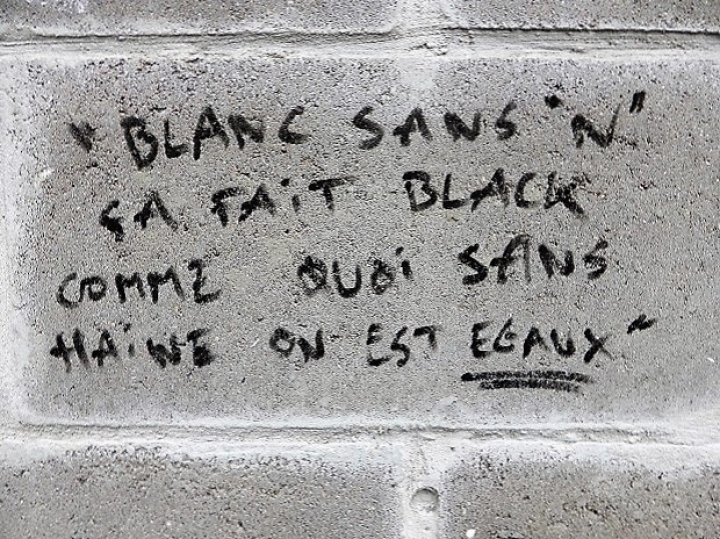 "BLANC SANS "N"
ÇA FAiT BLACK
COMME QUOi SANS
HAiNE ON EST EGAUX"